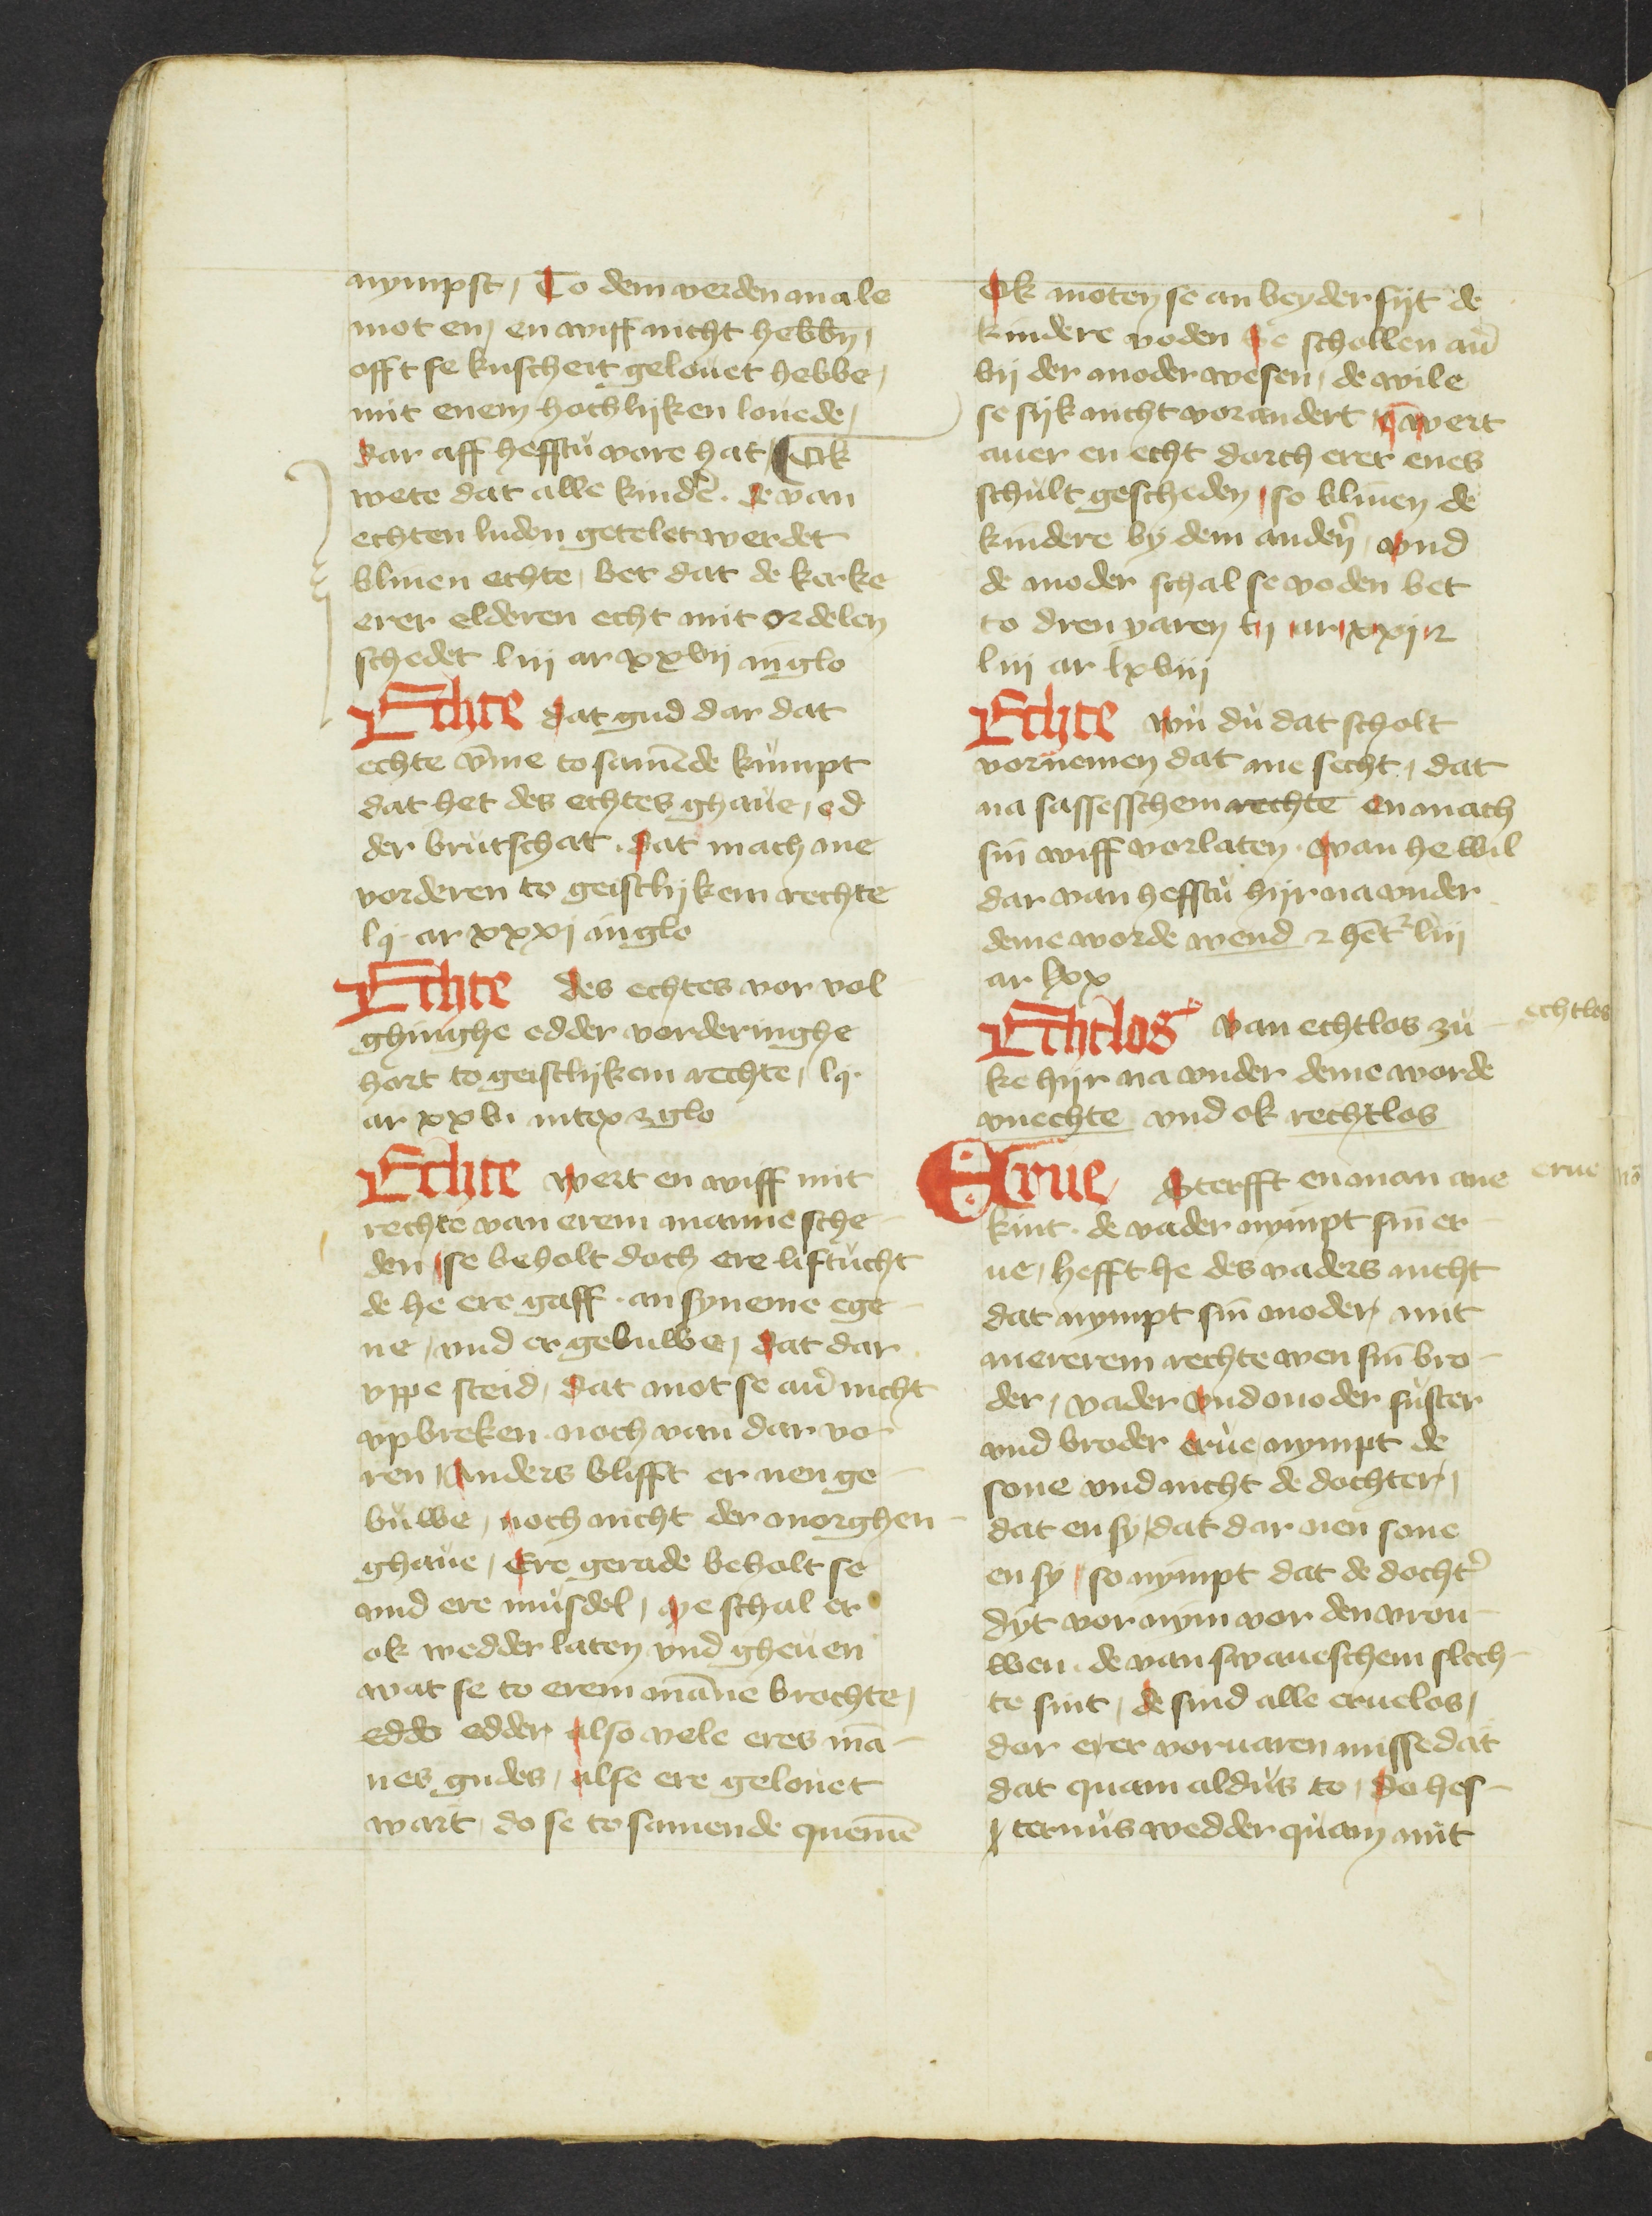 nympst / To dem verden male
mot en / en wiff nicht hebbn /
offt se kuscheit gelouet hebbe /
mit enem hochlijken louede /
dar aff hefftu vore hat / Ok
wete dat alle kinder . de van
echten luden getelet werdet
bliuen echte / bet dat de kerke
erer elderen echt mit ordelen
schedet liii ar xxvij in glo
Echte dat gud dar dat
echte vm̄e to samēde kumpt
dat het des echtes ghaue / ed
der brutschat . dat mach me
vorderen to geistlijkem rechte
lj ar xxxi in glo
Echte des echtes vor vol
ghinghe edder vorderinghe
hort to geistlijkem rechte / lj
ar xxvi in tex z glo
Echte wert en wiff mit
rechte van erem manne sche-
den / se beholt doch ere liftucht
de he ere gaff . an syneme ege-
ne / vnd er gebuwe / dat dar
vppe steid / dat mot se auer nicht
vpbreken . noch van dar vo-
ren / Anders blifft er nen ge-
buwe / noch nicht der morghen-
ghaue / Ere gerade beholt se
vnd ere musdel / Me schal er
ok wedder laten vnd gheuen
wat se to erem māne brochte /
eddo edder also vele eres mā-
nes gudes / alse ere gelouet
wart / do se to samende quemē
Ok moten se an beyder sijt de
kindere voden Se schollen auer
bij der moder wesen / de wile
se sijk nicht vorandert vn̄ wert
auer en echt dorch erer enes
schult gescheden / so bliuen de
kindere by dem anderen / vnd
de moder schal se voden bet
to dren yaren lij ar xxij z
liii ar lxviii
Echte wu du dat scholt
vornemen dat me secht / dat
na sassesschem rechte en mach
sin wiff vorlaten . wan he wil
dar van hefftu hijr na vnder
deme worde wend z hēt liii
ar lxx
Echtlos van echtlos zu-
echtlos
ke hijr na vnder deme worde
vnechte vnd ok rechtlos
Erue Sterfft en man ane
erue
kint . de vader nympt sin er-
ue / hefft he des vaders nicht
dat nympt sin moder / mit
mererem rechte wen sin bro-
der / vader vnd moder suster
vnd broder erue nympt de
sone vnd nicht de dochter /
dat en sy / dat dar nen sone
en sy / so nympt dat de dochter
dyt vornym vor den vrou-
wen . de van swaueschem slech-
te sint / de sind alle erue los /
dor erer voruaren missedat
dat quam aldus to / do hes-
ternus wedder quam mit